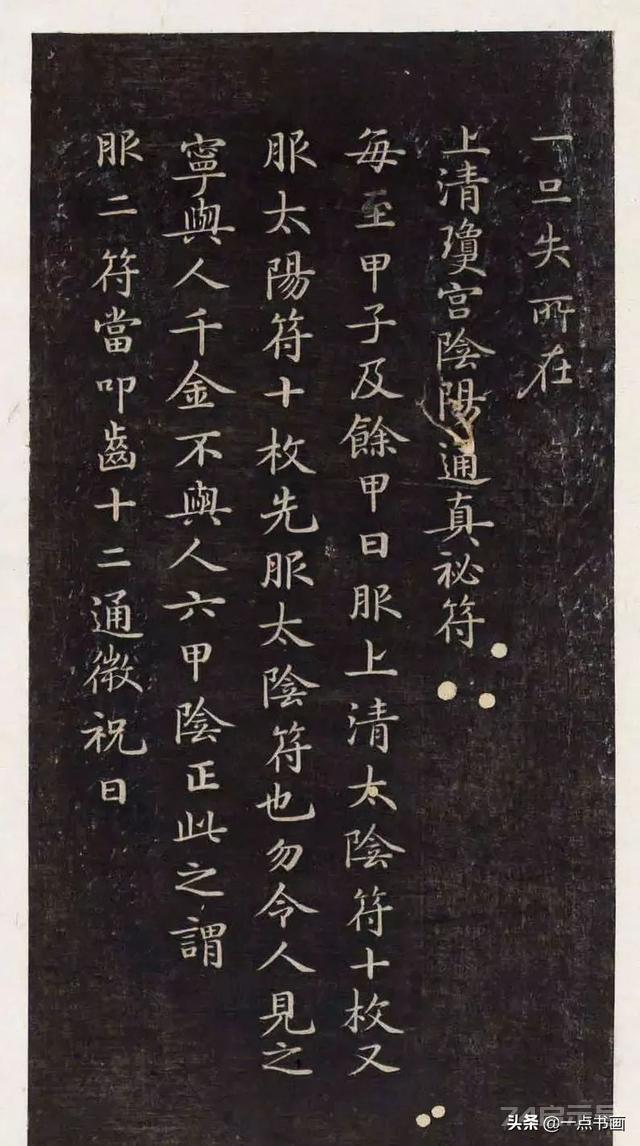 一旦失所在
上清瓊宮陰陽通真祕符
每至甲子及餘甲日服上清太陰符十枚又
服太陽符十枚先服太陰符也勿令人見之
寧與人千金不與人六甲陰正此之謂
服二符當叩齒十二通微祝曰
头条 @一点书画